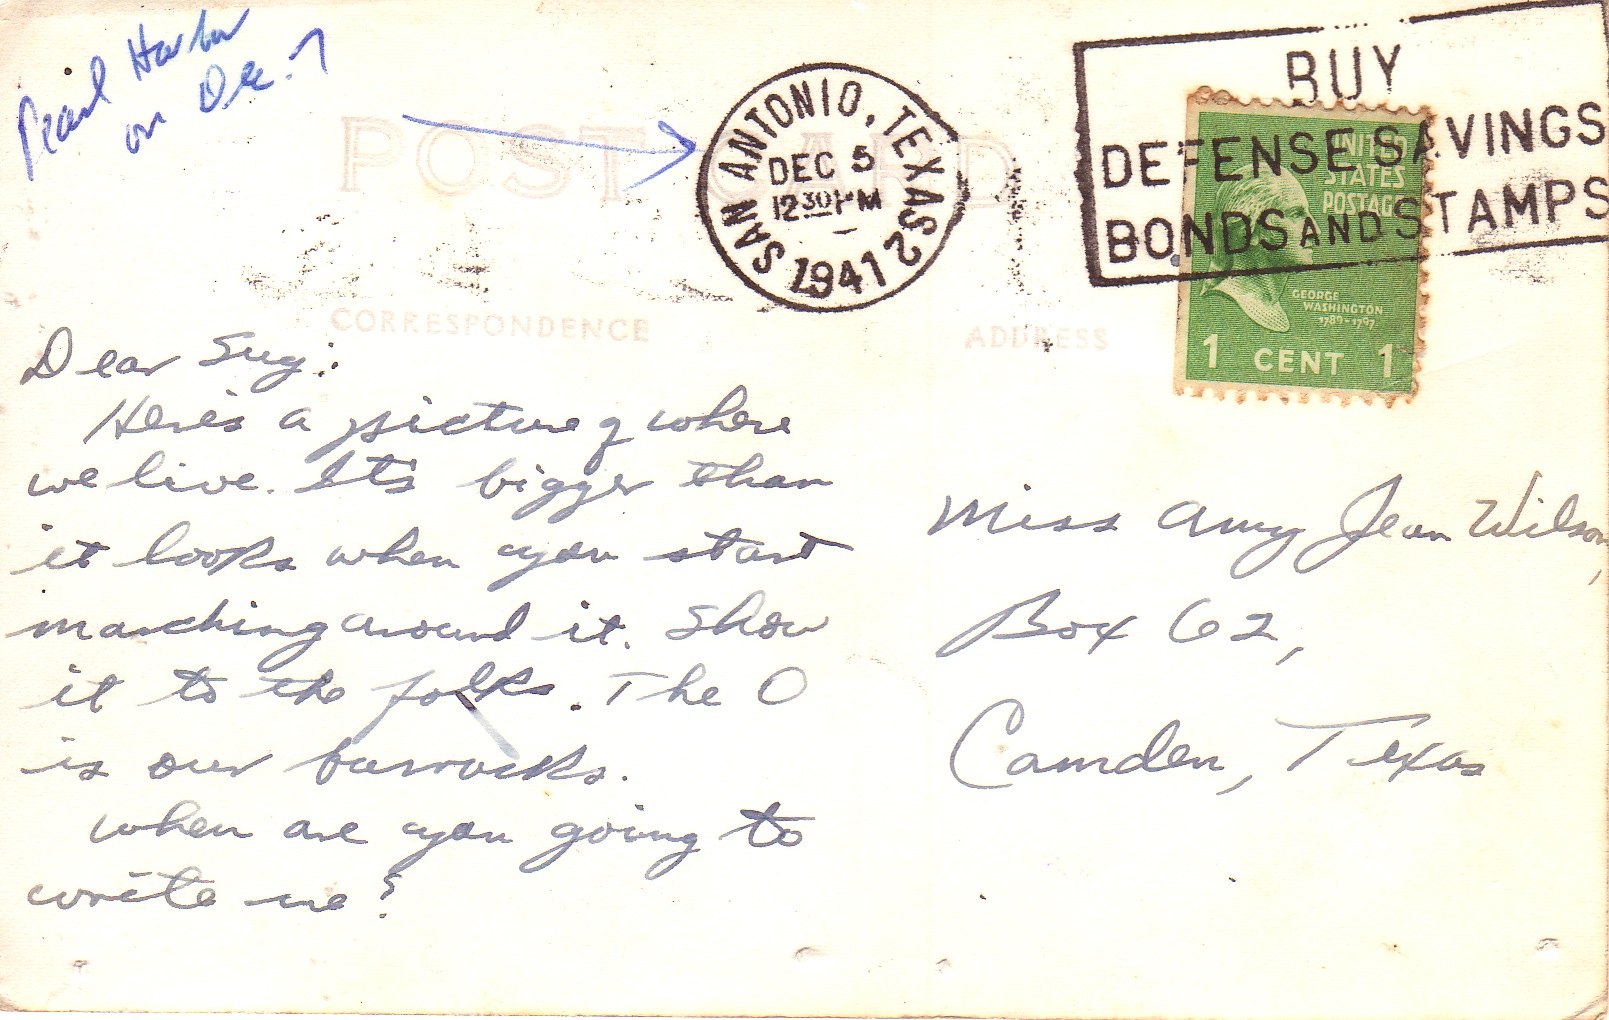 Pearl Harbor
on Dec. 7
POST CARD
SAN ANTONIO, TEXAS 2
DEC 5
12 30 PM
1941
BUY
DEFENSE SAVINGS
BONDS AND STAMPS
UNITED
STATES
POSTAGE
GEORGE
WASHINGTON
1789-1797
1 CENT 1
CORRESPONDENCE
ADDRESS
Dear Sug:
Here's a picture of where
we live. It's bigger than
it looks when you start
marching around it. Show
it to the folks. The O
is our barracks.
When are you going to
write me?
Miss Amy Jean Wilson,
Box 62,
Camden, Texas